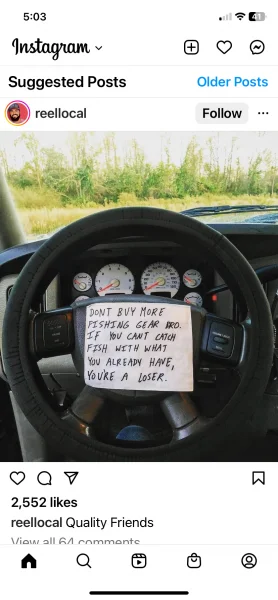 5:03
41
Instagram
Suggested Posts
Older Posts
reellocal
Follow
DONT BUY MORE
FISHING GEAR BRO.
IF YOU CANT CATCH
FISH WITH WHAT
YOU ALREADY HAVE,
YOU'RE A LOSER.
2,552 likes
reellocal Quality Friends
View all 64 comments